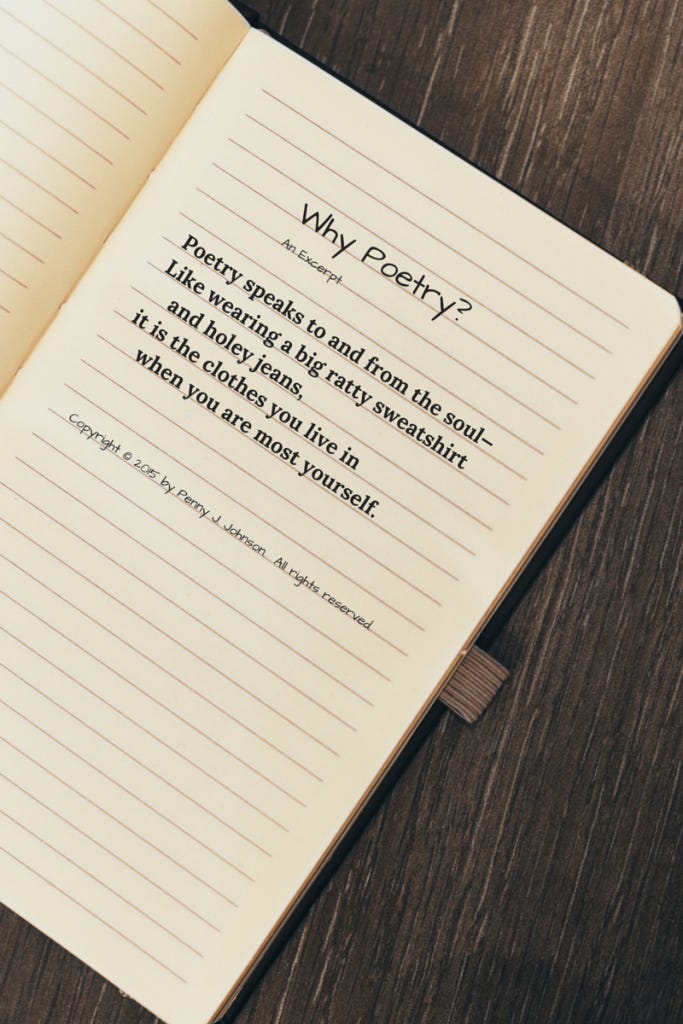 Why Poetry?
An Excerpt
Poetry speaks to and from the soul–
Like wearing a big ratty sweatshirt
and holey jeans,
it is the clothes you live in
when you are most yourself.
Copyright © 2015 by Penny J. Johnson  All rights reserved